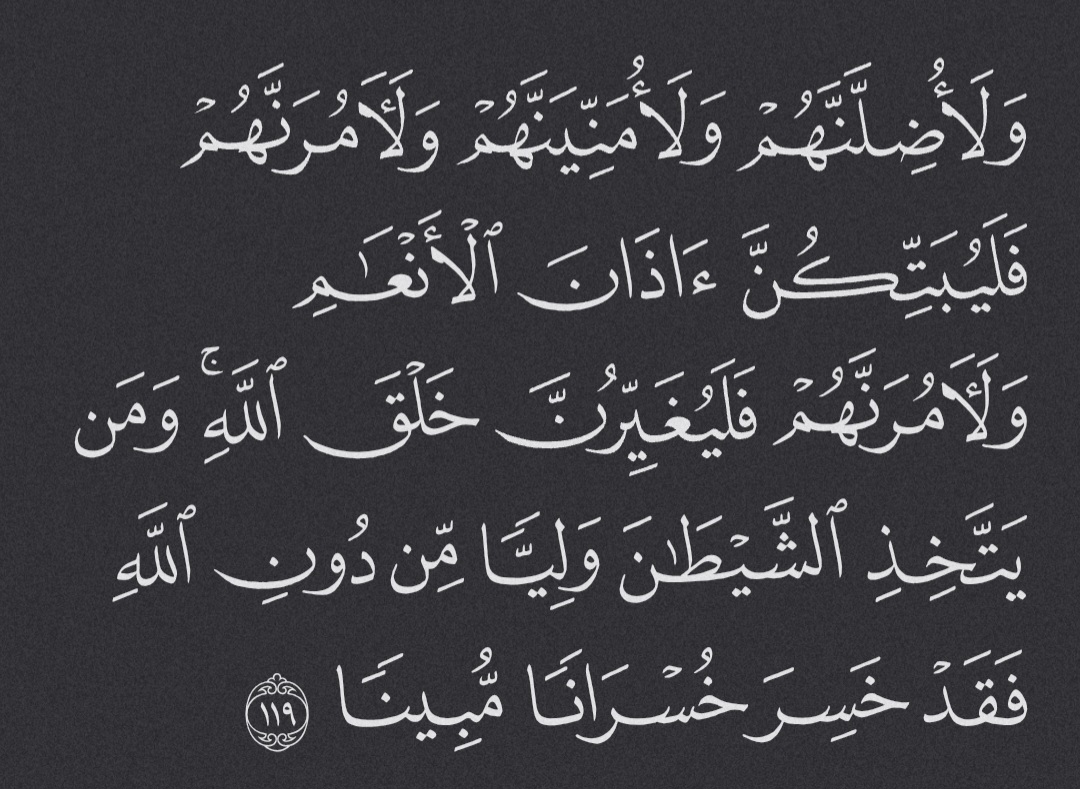 وَلَأُضِلَّنَّهُمْ وَلَأُمَنِّيَنَّهُمْ وَلَـَٔامُرَنَّهُمْ
فَلَيُبَتِّكُنَّ ءَاذَانَ ٱلْأَنْعَٰمِ
وَلَـَٔامُرَنَّهُمْ فَلَيُغَيِّرُنَّ خَلْقَ ٱللَّهِ ۚ وَمَن
يَتَّخِذِ ٱلشَّيْطَٰنَ وَلِيًّا مِّن دُونِ ٱللَّهِ
فَقَدْ خَسِرَ خُسْرَانًا مُّبِينًا ١١٩